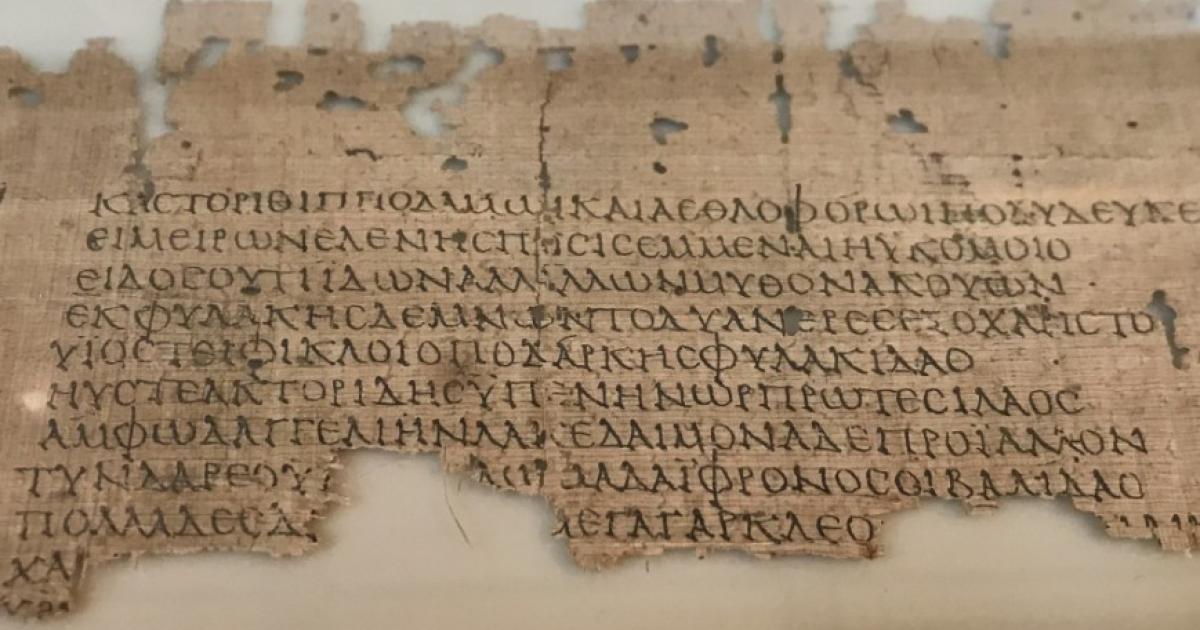 ΚΑϹΤΟΡΙΘΙΠΠΟΔΑΜΩΙΚΑΙΑΕΘΛΟΦΟΡΩΙΠΟΛΥΔΕΥΚΕ
ΕΙΜΕΙΡΩΝΕΛΕΝΗϹΠΟϹΙϹΕΜΜΕΝΑΙΗΥΚΟΜΟΙΟ
ΕΙΔΟϹΟΥΤΙΪΔΩΝΑΛΛΑΛΛΩΝΜΥΘΟΝΑΚΟΥΩΝ
ΕΚΦΥΛΑΚΗϹΔΕΜΝΩΝΤΟΔΥΑΝΕΡΕϹΕΞΟΧΑΡΙϹΤΟ
ΥΙΟϹΤΕΙΦΙΚΛΟΙΟΠΟΔΑΡΚΗϹΦΥΛΑΚΙΔΑΟ
ΗΥϹΤΕΑΚΤΟΡΙΔΗϹΫΠΕΡΗΝΩΡΠΡΩΤΕϹΙΛΑΟϹ
ΑΜΦΩΔΑΓΓΕΛΙΗΝΛΑΚΕΔΑΙΜΟΝΑΔΕΠΡΟΪΑΛΛΟΝ
ΤΥΝΔΑΡΕΟΥ ΜΑΔΑΪΦΡΟΝΟϹΟΙΒΑΛΙΔΑΟ
ΠΟΛΛΑΔΕϹΔ ΜΕΓΑΓΑΡΚΛΕΟ
ΧΑ